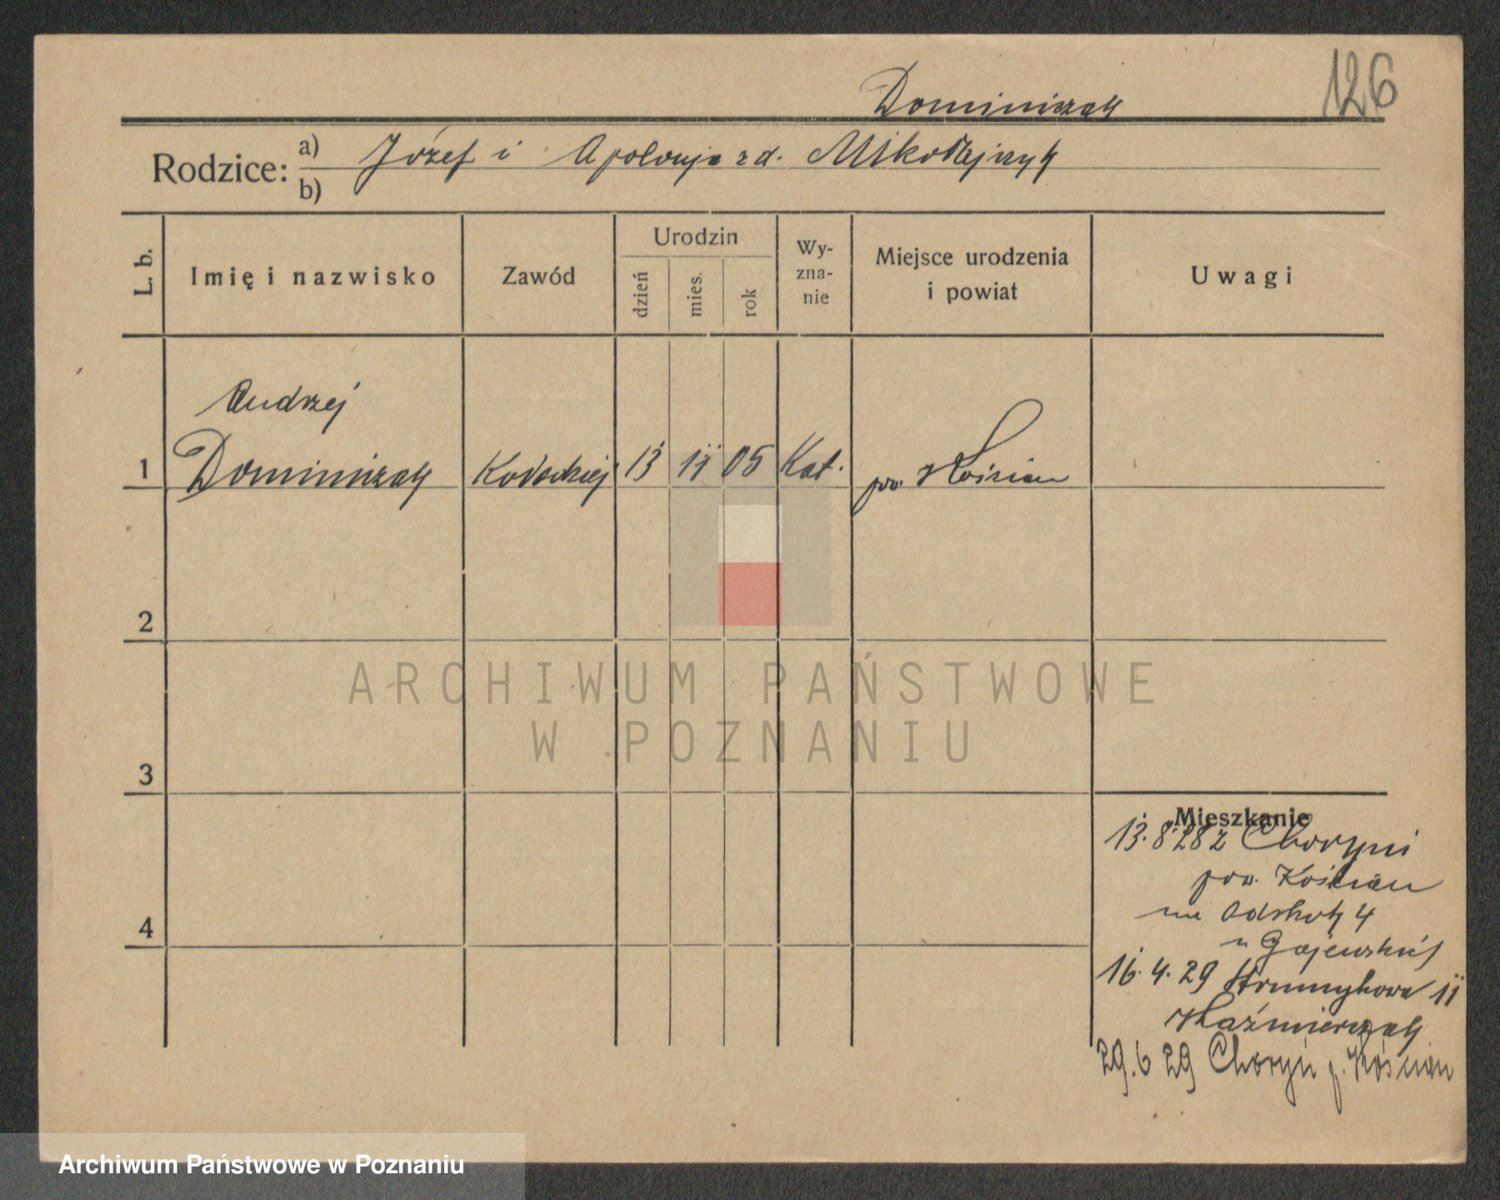 126
Dominiczak
Rodzice: a) Józef i Apolonja zd. Mikołajczyk
b)
L. b.
Imię i nazwisko
Zawód
Urodzin
dzień
mies.
rok
Wy-
zna-
nie
Miejsce urodzenia
i powiat
Uwagi
Andrzej
1 Dominiczak Kołodziej 13 11 05 Kat. pow. Kościan
2
3
4
ARCHIWUM PAŃSTWOWE
W POZNANIU
Mieszkanie
13. 8 28 z Choryni
pow. Kościan
na 4
u Gajewskiej
16. 4. 29 Strumykowa 11
Kaźmierczak
29. 6 29 Choryń p. Kościan
Archiwum Państwowe w Poznaniu